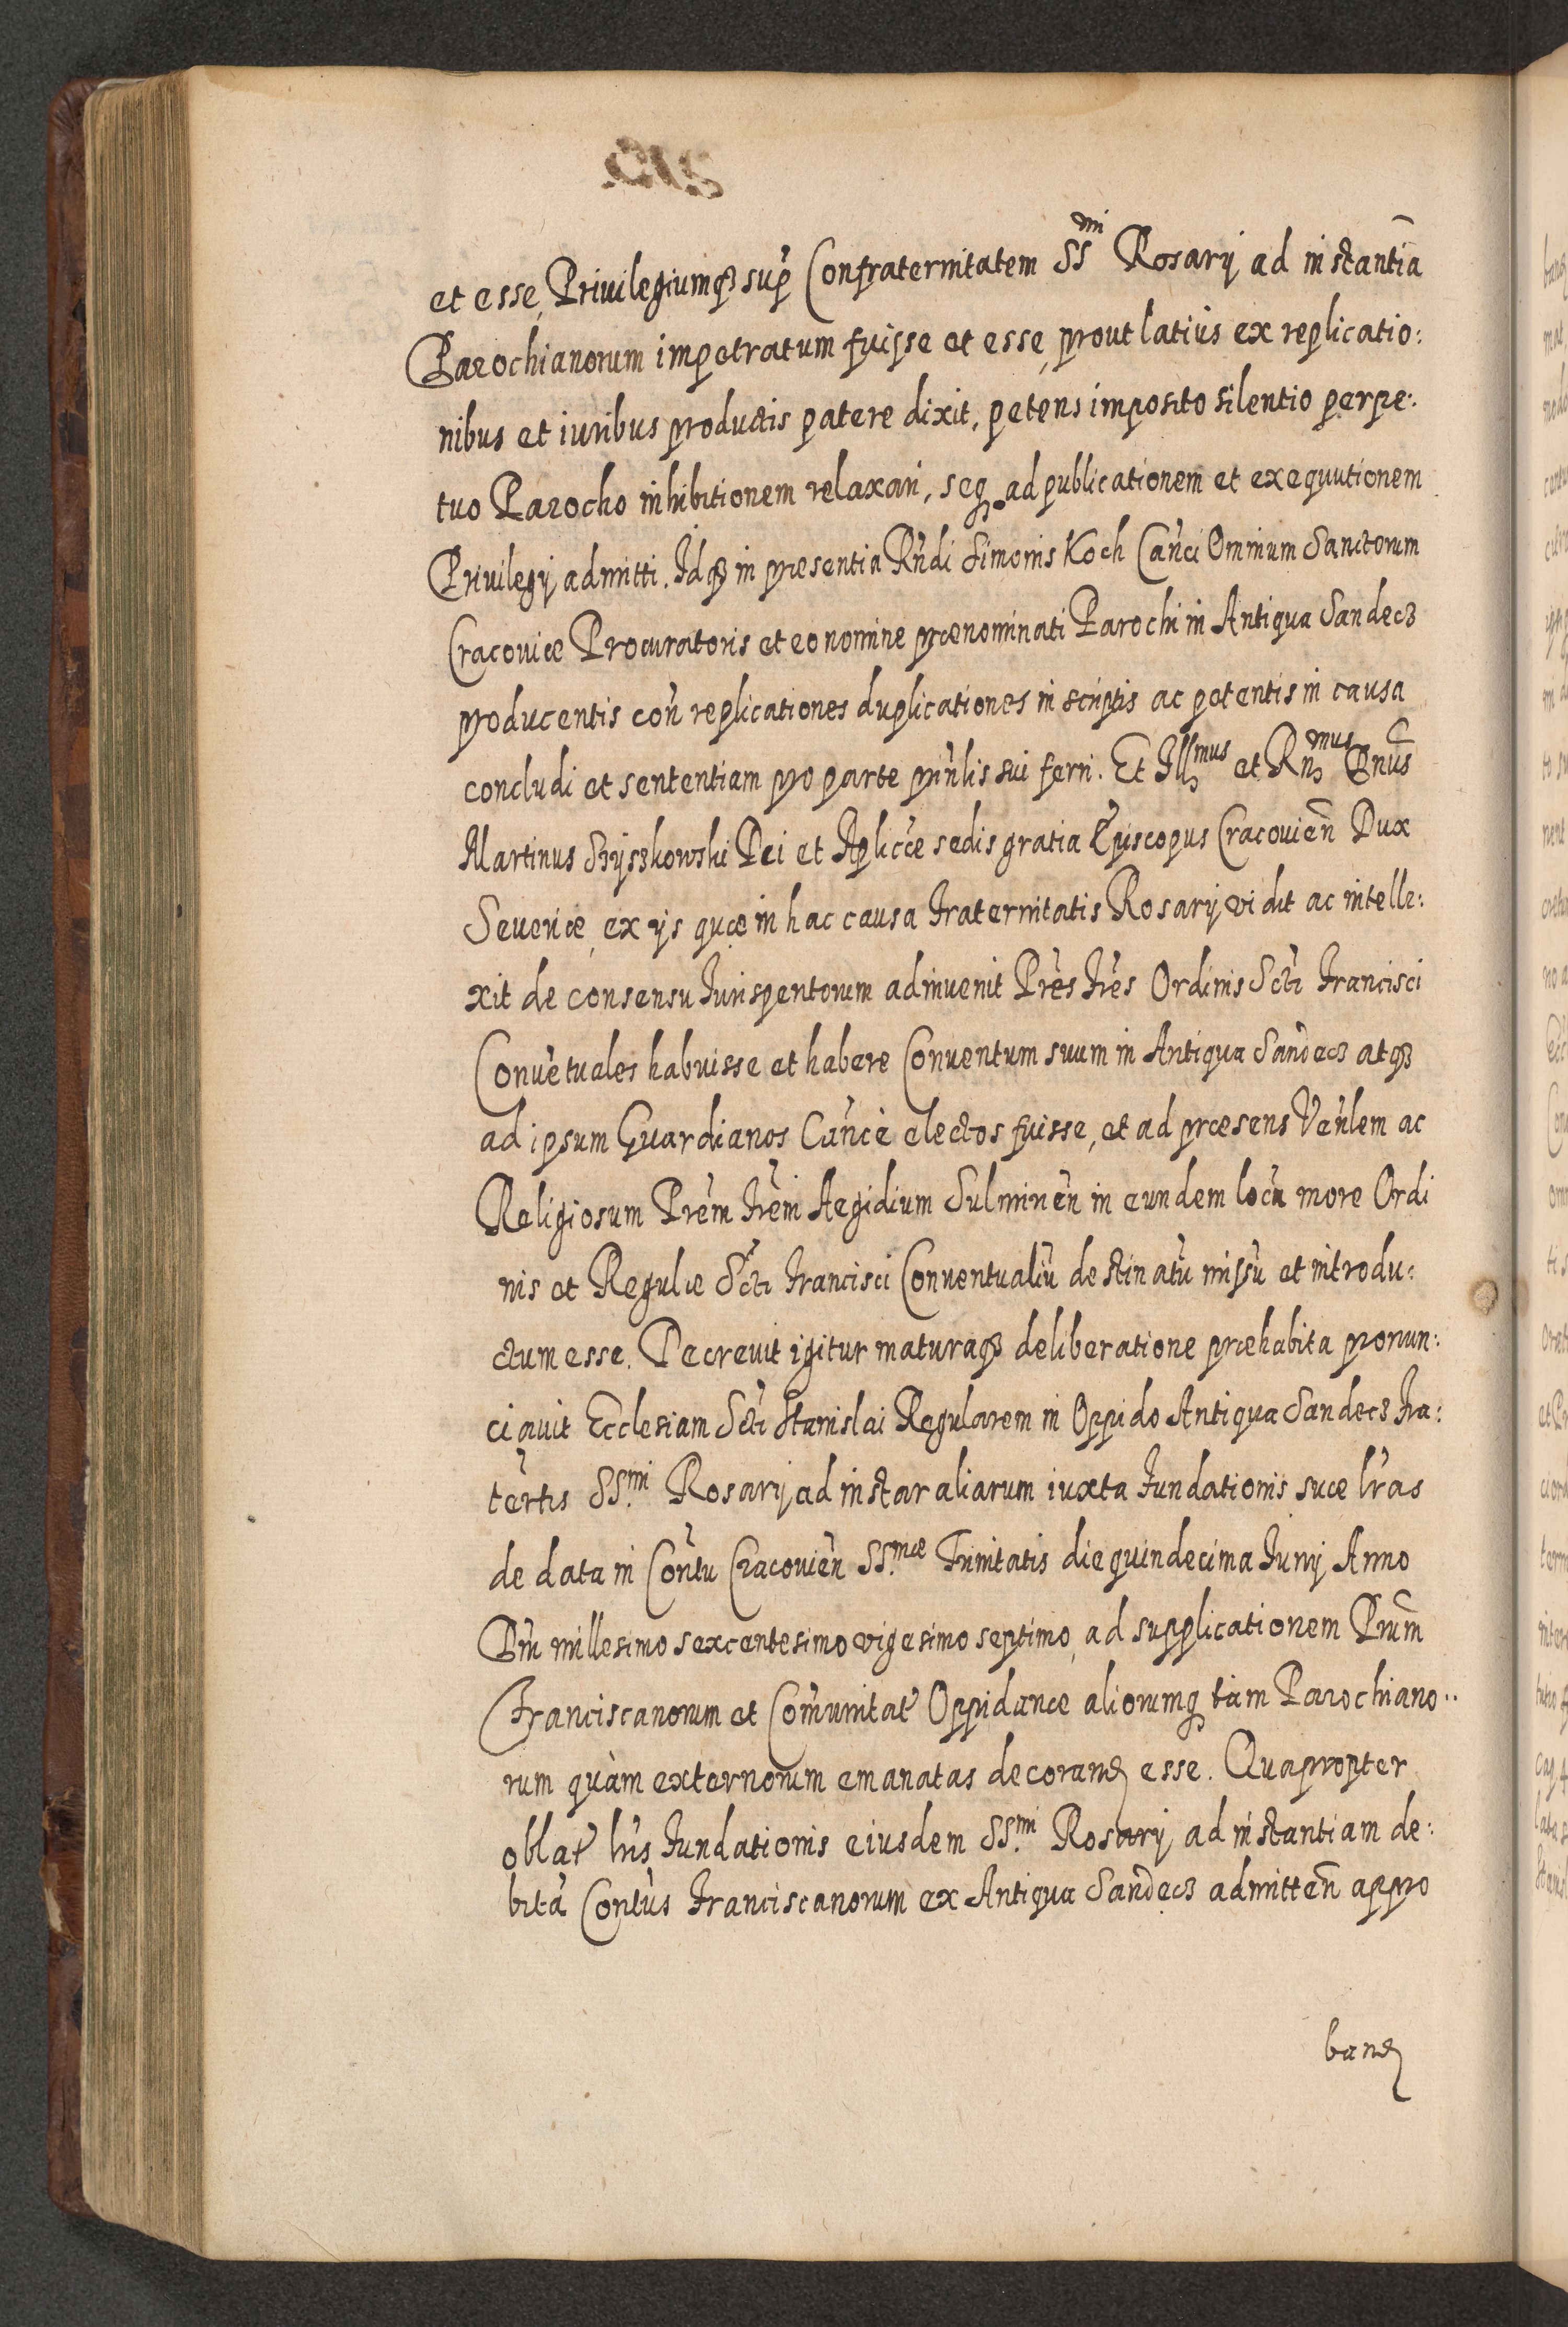 et esse, Priuilegiumq; sup̃ Confraternitatem SSmi Rosarij ad instantiã
Parochianorum impetratum fuisse et esse, prout latiùs ex replicatio:
nibus et iuribus productis patere dixit, petens imposito silentio perpe:
tuo Parocho inhibitionem relaxari, seq; ad publicationem et exequutionem
Priuilegij admitti. Idq; in præsentia Rñdi Simonis Koch Cañci Omnium Sanctorum
Cracouiæ Procuratoris et eo nomine prænominati Parochi in Antiqua Sandecz
producentis coñ replicationes duplicationes in scriptis ac petentis in causa
concludi et sententiam pro parte prinlis sui ferri. Et Illmus et Rnmus Dnus
Martinus Szyszkowski Dei et Aplicæ sedis gratia Episcopus Cracouieñ Dux
Seueriæ, ex ijs quæ in hac causa Fraternitatis Rosarij vidit ac intelle:
xit de consensu Iurisperitorum adinuenit Pr̃es Fr̃es Ordinis Scti Francisci
Conuẽtuales habuisse et habere Conuentum suum in Antiqua Sandecz atq;
ad ipsum Guardianos Cance electos fuisse, et ad præsens Veñlem ac
Religiosum Pr̃em Fr̃em Aegidium Sulmineñ in eundem locũ more Ordi
nis et Regulæ Scti Francisci Conuentualiũ destinatũ missũ et introdu:
ctum esse. Decreuit igitur maturaq; deliberatione præhabita pronun:
ciauit Ecclesiam Scti Stanislai Regularem in Oppido Antiqua Sandecz Fra:
tertis SS.mi Rosarij ad instar aliarum iuxta Fundationis suæ lr̃as
de data in Coñtu Cracouieñ SS.mæ Trinitatis die quindecima Iunij Anno
Dñi millesimo sexcentesimo vigesimo septimo, ad supplicationem Pr̃um
Franciscanorum et Com̃unitat Oppidanæ aliorumq; tam Parochiano:
rum quàm externorum emanatas decorand esse. Quapropter
oblat lr̃is Fundationis eiusdem SS.mi Rosarij ad instantiam de:
bitã Coñtus Franciscanorum ex Antiqua Sandecz admitteñ appro
band